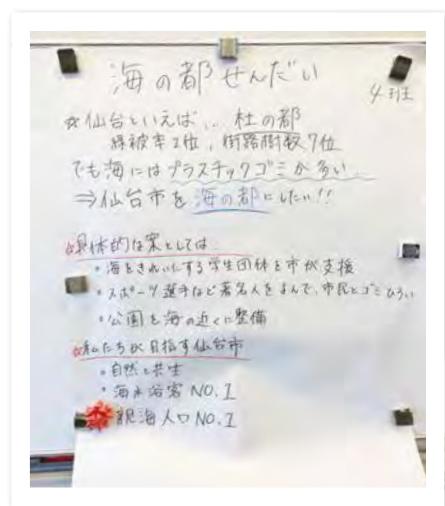 海の都せんだい
4班
☆仙台といえば... 杜の都
緑被率2位, 街路樹数7位
でも海にはプラスチックゴミが多い
⇒仙台市を海の都にしたい!!
☆具体的な案としては
・海をきれいにする学生団体を市が支援
・スポーツ選手など著名人をよんで、市民とゴミひろい
・公園を海の近くに整備
☆私たちが目指す仙台市
・自然と共生
・海水浴客 NO.1
親海人口 NO.1